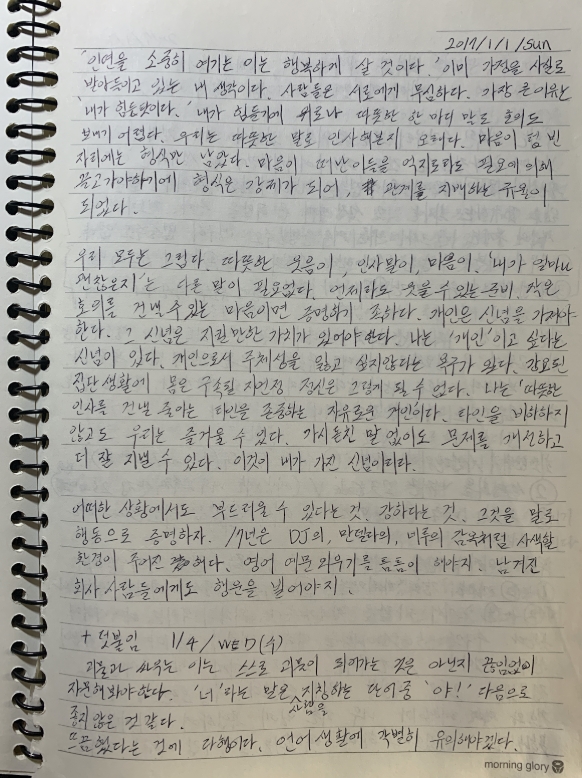 2017/1/1/sun
'인연을 소중히 여기는 이는 행복하게 살 것이다.' 이미 가정을 사실로
받아들이고 있는 내 생각이다. 사람들은 서로에게 무심하다. 가장 큰 이유는
'내가 힘들었다.' 내가 힘들기에 위로나 따뜻한 한 마디 말로 호의도
보내기 어렵다. 우리는 따뜻한 말로 인사해본지 오래다. 마음이 텅 빈
자리에는 형식만 남았다. 마음이 떠난 이들을 억지로라도 필요에 의해
끌고가야하기에 형식은 강제가 되어, 관계를 지배하는 규율이
되었다.
우리 모두는 그립다. 따뜻한 웃음이, 인사말이, 마음이. '내가 얼마나
괜찮은지'는 다른 말이 필요없다. 언제라도 웃을 수 있는 준비, 작은
호의를 건넬 수 있는 마음이면 증명하기 족하다. 개인은 신념을 가져야
한다. 그 신념은 지킬만한 가치가 있어야 한다. 나는 '개인'이고 싶다는
신념이 있다. 개인으로서 주체성을 잃고 싶지않다는 욕구가 있다. 강요된
집단생활에 몸은 구속될 지언정 정신은 그렇게 될 수 없다. 나는 '따뜻한
인사를 건넬 줄아는 타인을 존중하는 자유로운 개인이다. 타인을 비하하지
않고도 우리는 즐거울 수 있다. 가시돋친 말 없이도 문제를 개선하고
더 잘 지낼 수 있다. 이것이 내가 가진 신념이리라.
어떠한 상황에서도 부드러울 수 있다는 것. 강하다는 것. 그것을 말로
행동으로 증명하자. 17년은 DJ의, 만델라의, 미루의 감옥처럼 사색할
환경이 주어진 해다. 영어 예문 외우기를 틈틈이 해야지. 남겨진
회사 사람들에게도 행운을 빌어야지.
+ 덧붙임 1/4 / WED(수)
괴물과 싸우는 이는 스스로 괴물이 되어가는 것은 아닌지 끊임없이
자문해봐야한다. '너'라는 말은 사람을 지칭하는 단어중 '야!' 다음으로
좋지 않은 것 같다.
뜨끔했다는 것에 다행이다. 언어생활에 각별히 유의해야겠다.
morning glory